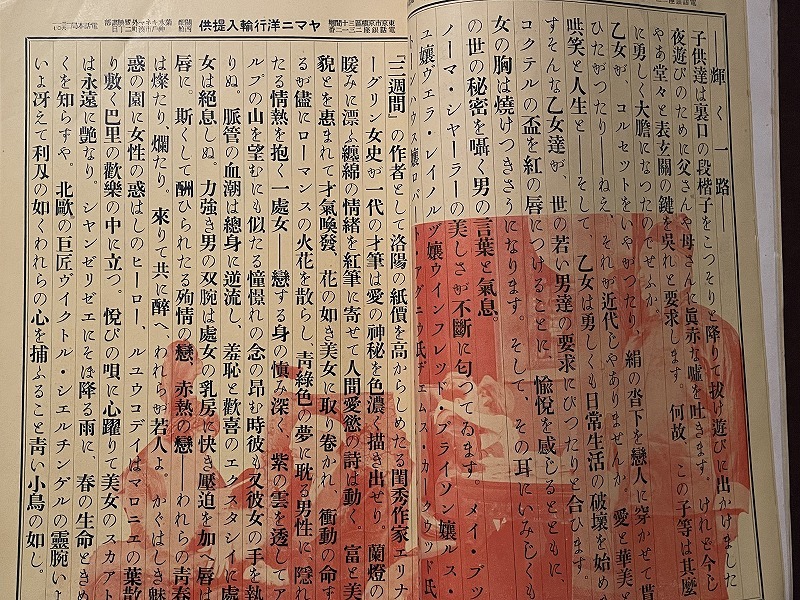 ――輝く一路――
子供達は裏口の段梯子をこつそりと降りて抜け遊びに出かけました
夜遊びのために父さんや母さんに眞赤な嘘を吐きます。けれど今じ
やあ堂々と表玄關の鍵を呉れと要求します。何故 この子等は其麼
に勇しく大膽になつたのでせふか。
乙女が、コルセツトをいやがつたり、絹の沓下を戀人に穿かせて貰
ひたがつたり ねえ、それが近代ぢやありませんか。愛と華美と
哄笑と人生と そして 乙女は勇しくも日常生活の破壞を始め
すそんな乙女達が、世の若い男達の要求にぴつたりと合ひます。
コクテルの盃を紅の唇につけることに、愉悅を感じるとともに、
女の胸は燒けつきさうになります。そして、その耳にいみじくも
の世の秘密を囁く男の言葉と氣息。
ノーマ・シヤーラーの美しさが不斷に匂つてゐます。メイ・ブツ
ユ孃ヴエラ・レイノルヅ孃ウインフレツド・ブライソン孃ルス・
トンハウス孃ロバート・アグニウ氏ヂエムス・カークウツド氏
電話銀座
東京市京橋區三十間堀
ヤマニ洋行輸入提供
『三週間』の作者として洛陽の紙價を高からしめたる閨秀作家エリナ
ーグリン女史が一代の才筆は愛の神秘を色濃く描き出せり。蘭燈の
暖みに漂ふ纏綿の情緒を紅筆に寄せて人間愛慾の詩は動く。富と美
貌とを惠まれて才氣喚發、花の如き美女に取り卷かれ 衝動の命ず
るが儘にローマンスの火花を散らし、靑綠色の夢に耽る男性に 隱れ
たる情熱を抱く一處女 戀する身の愼み深く 紫の雲を透してア
ルプの山を望むにも似たる憧憬れの念の昂む時彼も又彼女の手を執
りぬ。脈管の血潮は總身に逆流し、羞恥と歡喜のエクスタシイに處
女は絕息しぬ。力強き男の双腕は處女の乳房に快き壓迫を加へ唇は
唇に。斯くして酬ひられたる殉情の戀、赤熱の戀――われらの靑春
は燦たり、爛たり。來りて共に醉へ、われらが若人よ。かぐはしき魅
惑の園に女性の惑はしのヒーロー、ルユウコデイはマロニエの葉散
り敷く巴里の歡樂の中に立つ。悅びの唄に心躍りて美女のスカアト
は永遠に艷なり。シヤンゼリゼエにそぼ降る雨に、春の生命ときめ
くを知らずや。北歐の巨匠ヴイクトル・シエルチンゲルの靈腕いよ
いよ冴えて利刄の如くわれらの心を捕ふること靑い小鳥の如し。